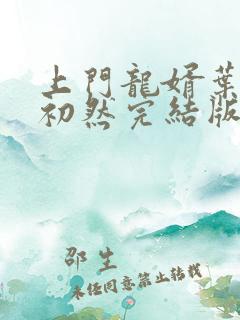 上門龍婿葉
初然完結版
邵生
未經同意禁止轉載